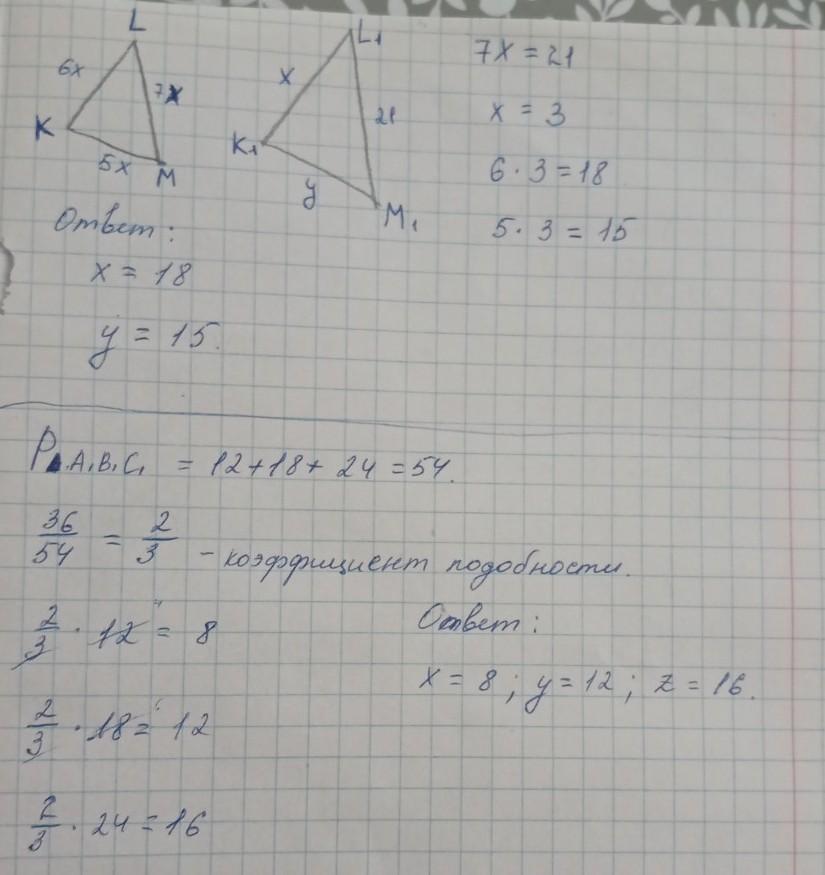 L
6x
7x
K
5x
M
L₁
x
21
K₁
y
M₁
7x = 21
x = 3
6 · 3 = 18
5 · 3 = 15
Ответ:
x = 18
y = 15.
P▲.A₁B₁C₁ = 12+18+ 24 = 54.
36/54 = 2/3 - коэффициент подобности.
2/3 · 12 = 8
2/3 · 18 = 12
2/3 · 24 = 16
Ответ:
x = 8 ; y = 12 ; z = 16.